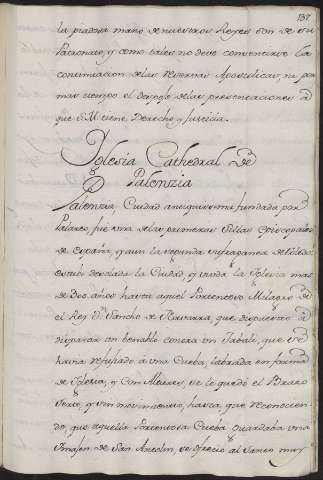 137
la piadosa mano de nuestros Reyes son de su
Patronato, y como tales no deve consentirse la
continuacion de las reservas Apostolicas, ni por
mas tiempo el despojo de las presentaciones à
que S.M. tiene Derecho y Justicia.
Yglesia Cathedral de
Palenzia
Palenzia, Ciudad antiquissima fundada por
Palateo, fué una de las primeras Sillas Episcopales
de España, y aun la segunda sufraganea de Toledo:
estubo desolada la Ciudad, y viuda la Yglesia mas
de Dos años hasta aquel Portentoso Milagro de
el Rey Dn. Sancho de Navarra, que dispuesto à
disparar un benablo contra un Jabalí, que se
havia refugiado à una Cueba, labrada en forma
de Yglesia, y con Altares, se le quedó el Brazo
yerto, y sin movimiento, hasta que reconocien-
do, que aquella Portentosa Cueba guardaba una
Imagen de San Antolin se ofreció al Santo muy